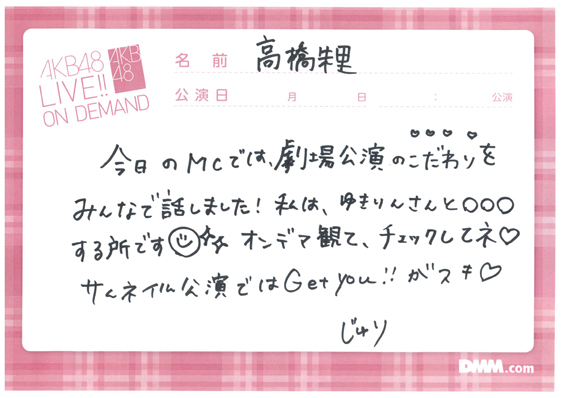 AKB48
LIVE!!
ON DEMAND
AKB
48
名 前 高橋朱里
公演日 月 日 : 公演
今日のMCでは、劇場公演のこだわりを
みんなで話しました！私は、ゆきりんさんと○○○
する所です オンデマ観て、チェックしてネ♡
サムネイル公演ではGet you!!がスキ♡
じゅり
DMM.com